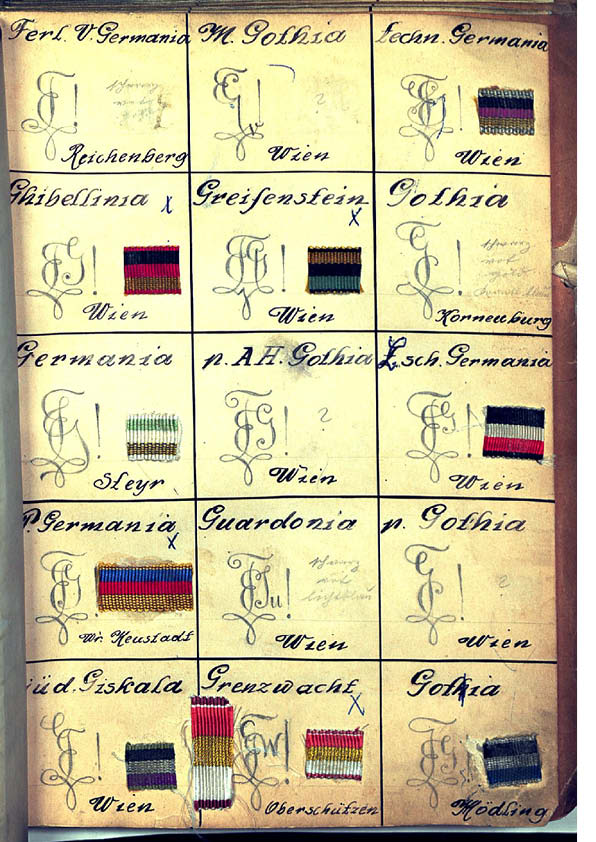 Ferl. V. Germania
Reichenberg
M. Gothia
?
Wien
techn. Germania
Wien
Ghibellinia x
Wien
Greifenstein
x
Wien
Gothia
schwarz
rot
gold
Korneuburg
Germania
Steyr
p. AH. Gothia
?
Wien
L.sch. Germania
Wien
P. Germania
x
Wr. Neustadt
Guardonia
schwarz
rot
lichtblau
Wien
p. Gothia
?
Wien
jüd. Giskala
Wien
Grenzwacht
x
Oberschützen
Gothia
Mödling